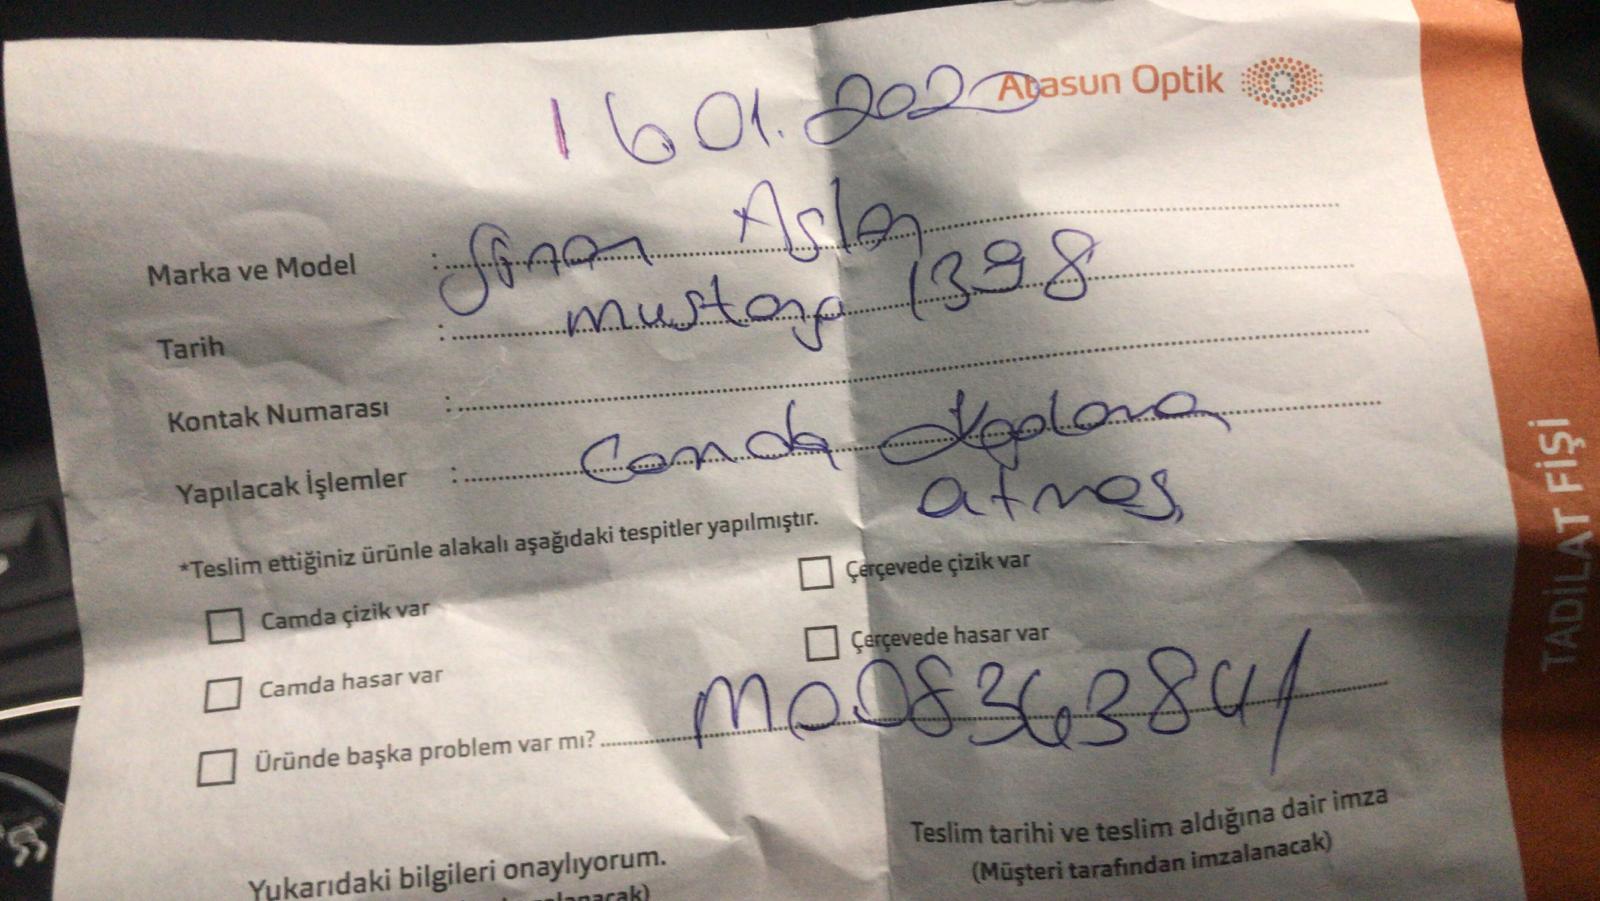 Atasun Optik
16 01.2020
Marka ve Model : Sinan Aslan
Tarih : mustafa 1398
Kontak Numarası :
Yapılacak İşlemler : Camda
atmas
*Teslim ettiğiniz ürünle alakalı aşağıdaki tespitler yapılmıştır.
Camda çizik var
Çerçevede çizik var
Camda hasar var
Çerçevede hasar var
Üründe başka problem var mı? M008363841
Yukarıdaki bilgileri onaylıyorum.
Teslim tarihi ve teslim aldığına dair imza
(Müşteri tarafından imzalanacak)
TADİLAT FİŞİ